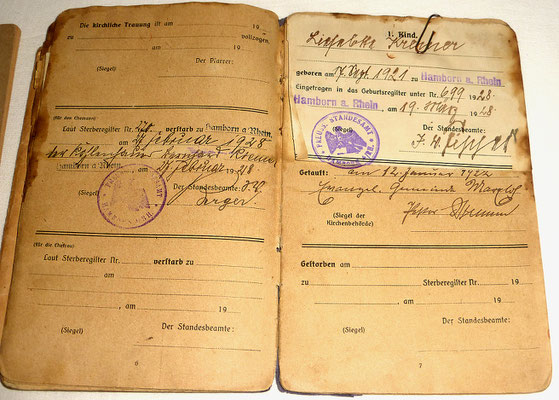 Die kirchliche Trauung ist am 19
zu vollzogen.
am 19
(Siegel) Der Pfarrer:
(für den Ehemann)
Laut Sterberegister Nr. verstarb zu Hamborn a. Rhein.
am Februar 1928
der
Hamborn a. Rhein, Februar 1928
(Siegel) Der Standesbeamte:
PREUSS. STANDESAMT
(für die Ehefrau)
Laut Sterberegister Nr. verstarb zu
am
, am 19
(Siegel) Der Standesbeamte:
6
1. Kind.
geboren am 7. Sept. 1921 zu Hamborn a. Rhein
Eingetragen in das Geburtsregister unter Nr. 699 1928
Hamborn a. Rhein, am 19. März 1928
(Siegel) Der Standesbeamte:
PREUSS. STANDESAMT
Getauft: am 12. Januar 1922
Evangel. Gemeinde Marxloh
(Siegel der Kirchenbehörde)
Gestorben am
zu Sterberegister Nr. 19
, am 19
(Siegel) Der Standesbeamte:
7